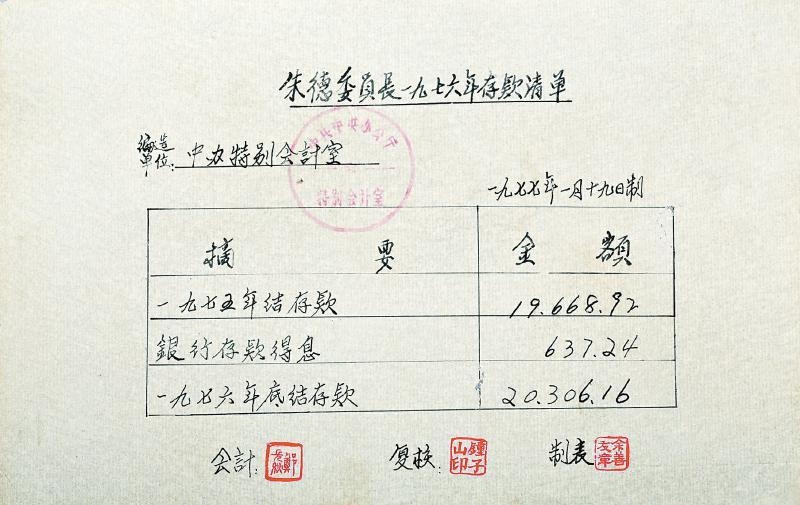 朱德委員長一九七六年存款清单
編造单位：中办特别会計室
中共中央办公厅
特别会计室
一九七七年一月十九日制
摘要 金額
一九七五年结存款 19.668.92
銀行存款得息 637.24
一九七六年底结存款 20.306.16
会計： 复核： 鍾子山印 制表 余善友章